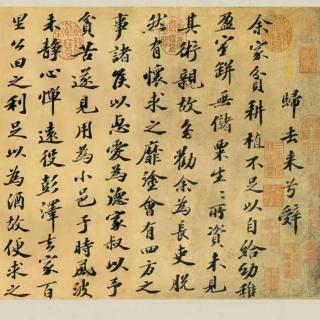 歸去來兮辭
余家貧耕植不足以自給幼稚
盈室缾無儲粟生〻所資未見
其術親故多勸余為長吏脫
然有懷求之靡塗會有四方之
事諸侯以惠愛為德家叔以予
貧苦遂見用為小邑于時風波
未靜心憚遠役彭澤去家百
里公田之利足以為酒故便求之